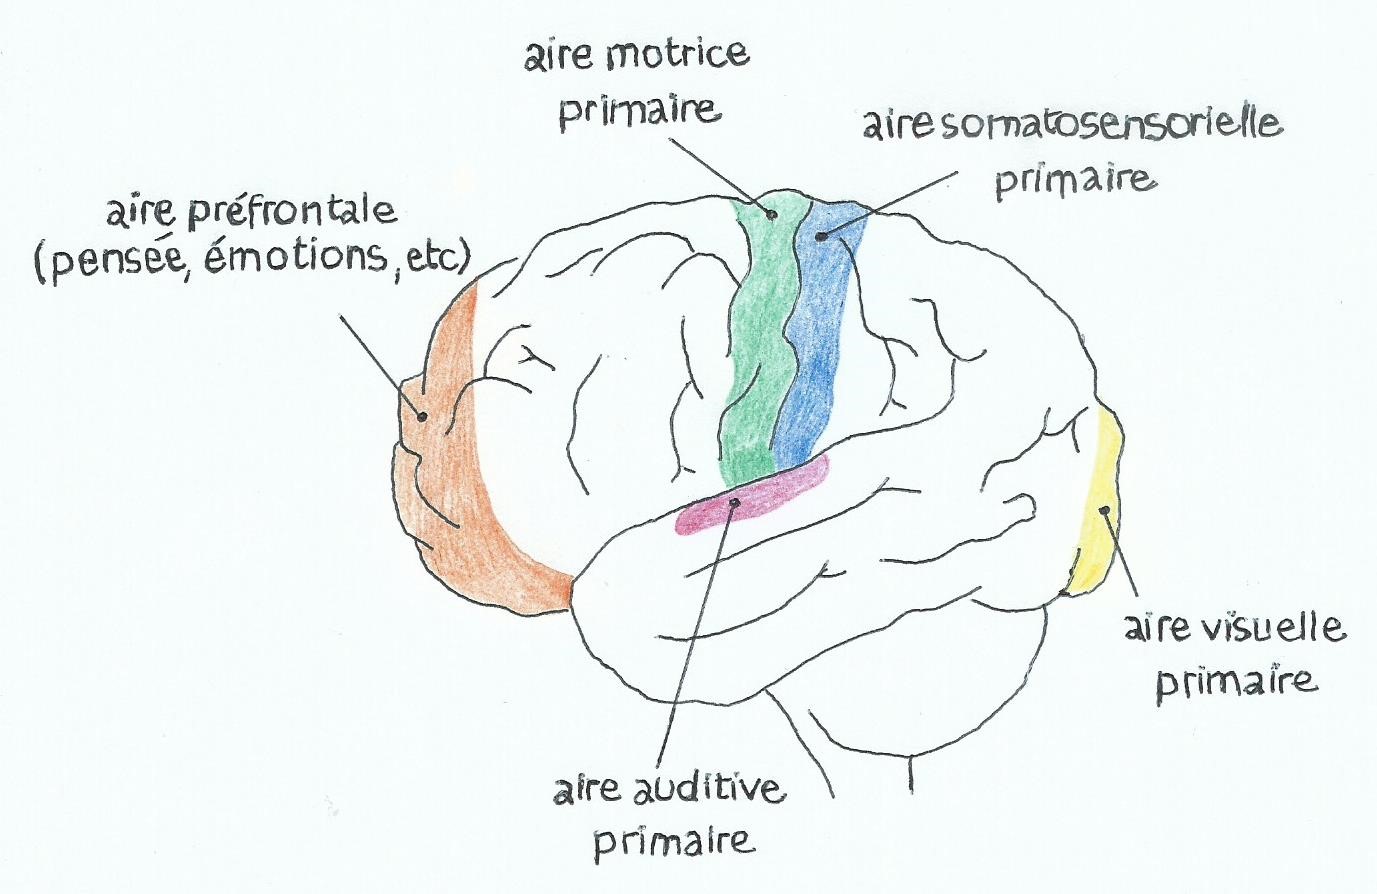 aire motrice
primaire
aire somatosensorielle
primaire
aire préfrontale
(pensée, émotions, etc)
aire visuelle
primaire
aire auditive
primaire